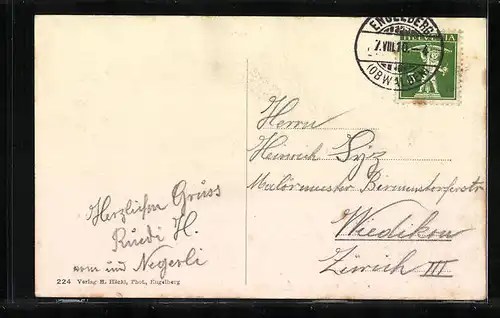 ENGELBERG
7.VIII.10.-4
(OBWALDEN)
HELVETIA
Herrn
Heinrich Syz
Malermeister Birmensdorferstr
Wiedikon
Zürich III
Herzlichen Gruss
Ruedi H.
und Negerli
224 Verlag H. Häcki, Phot., Engelberg